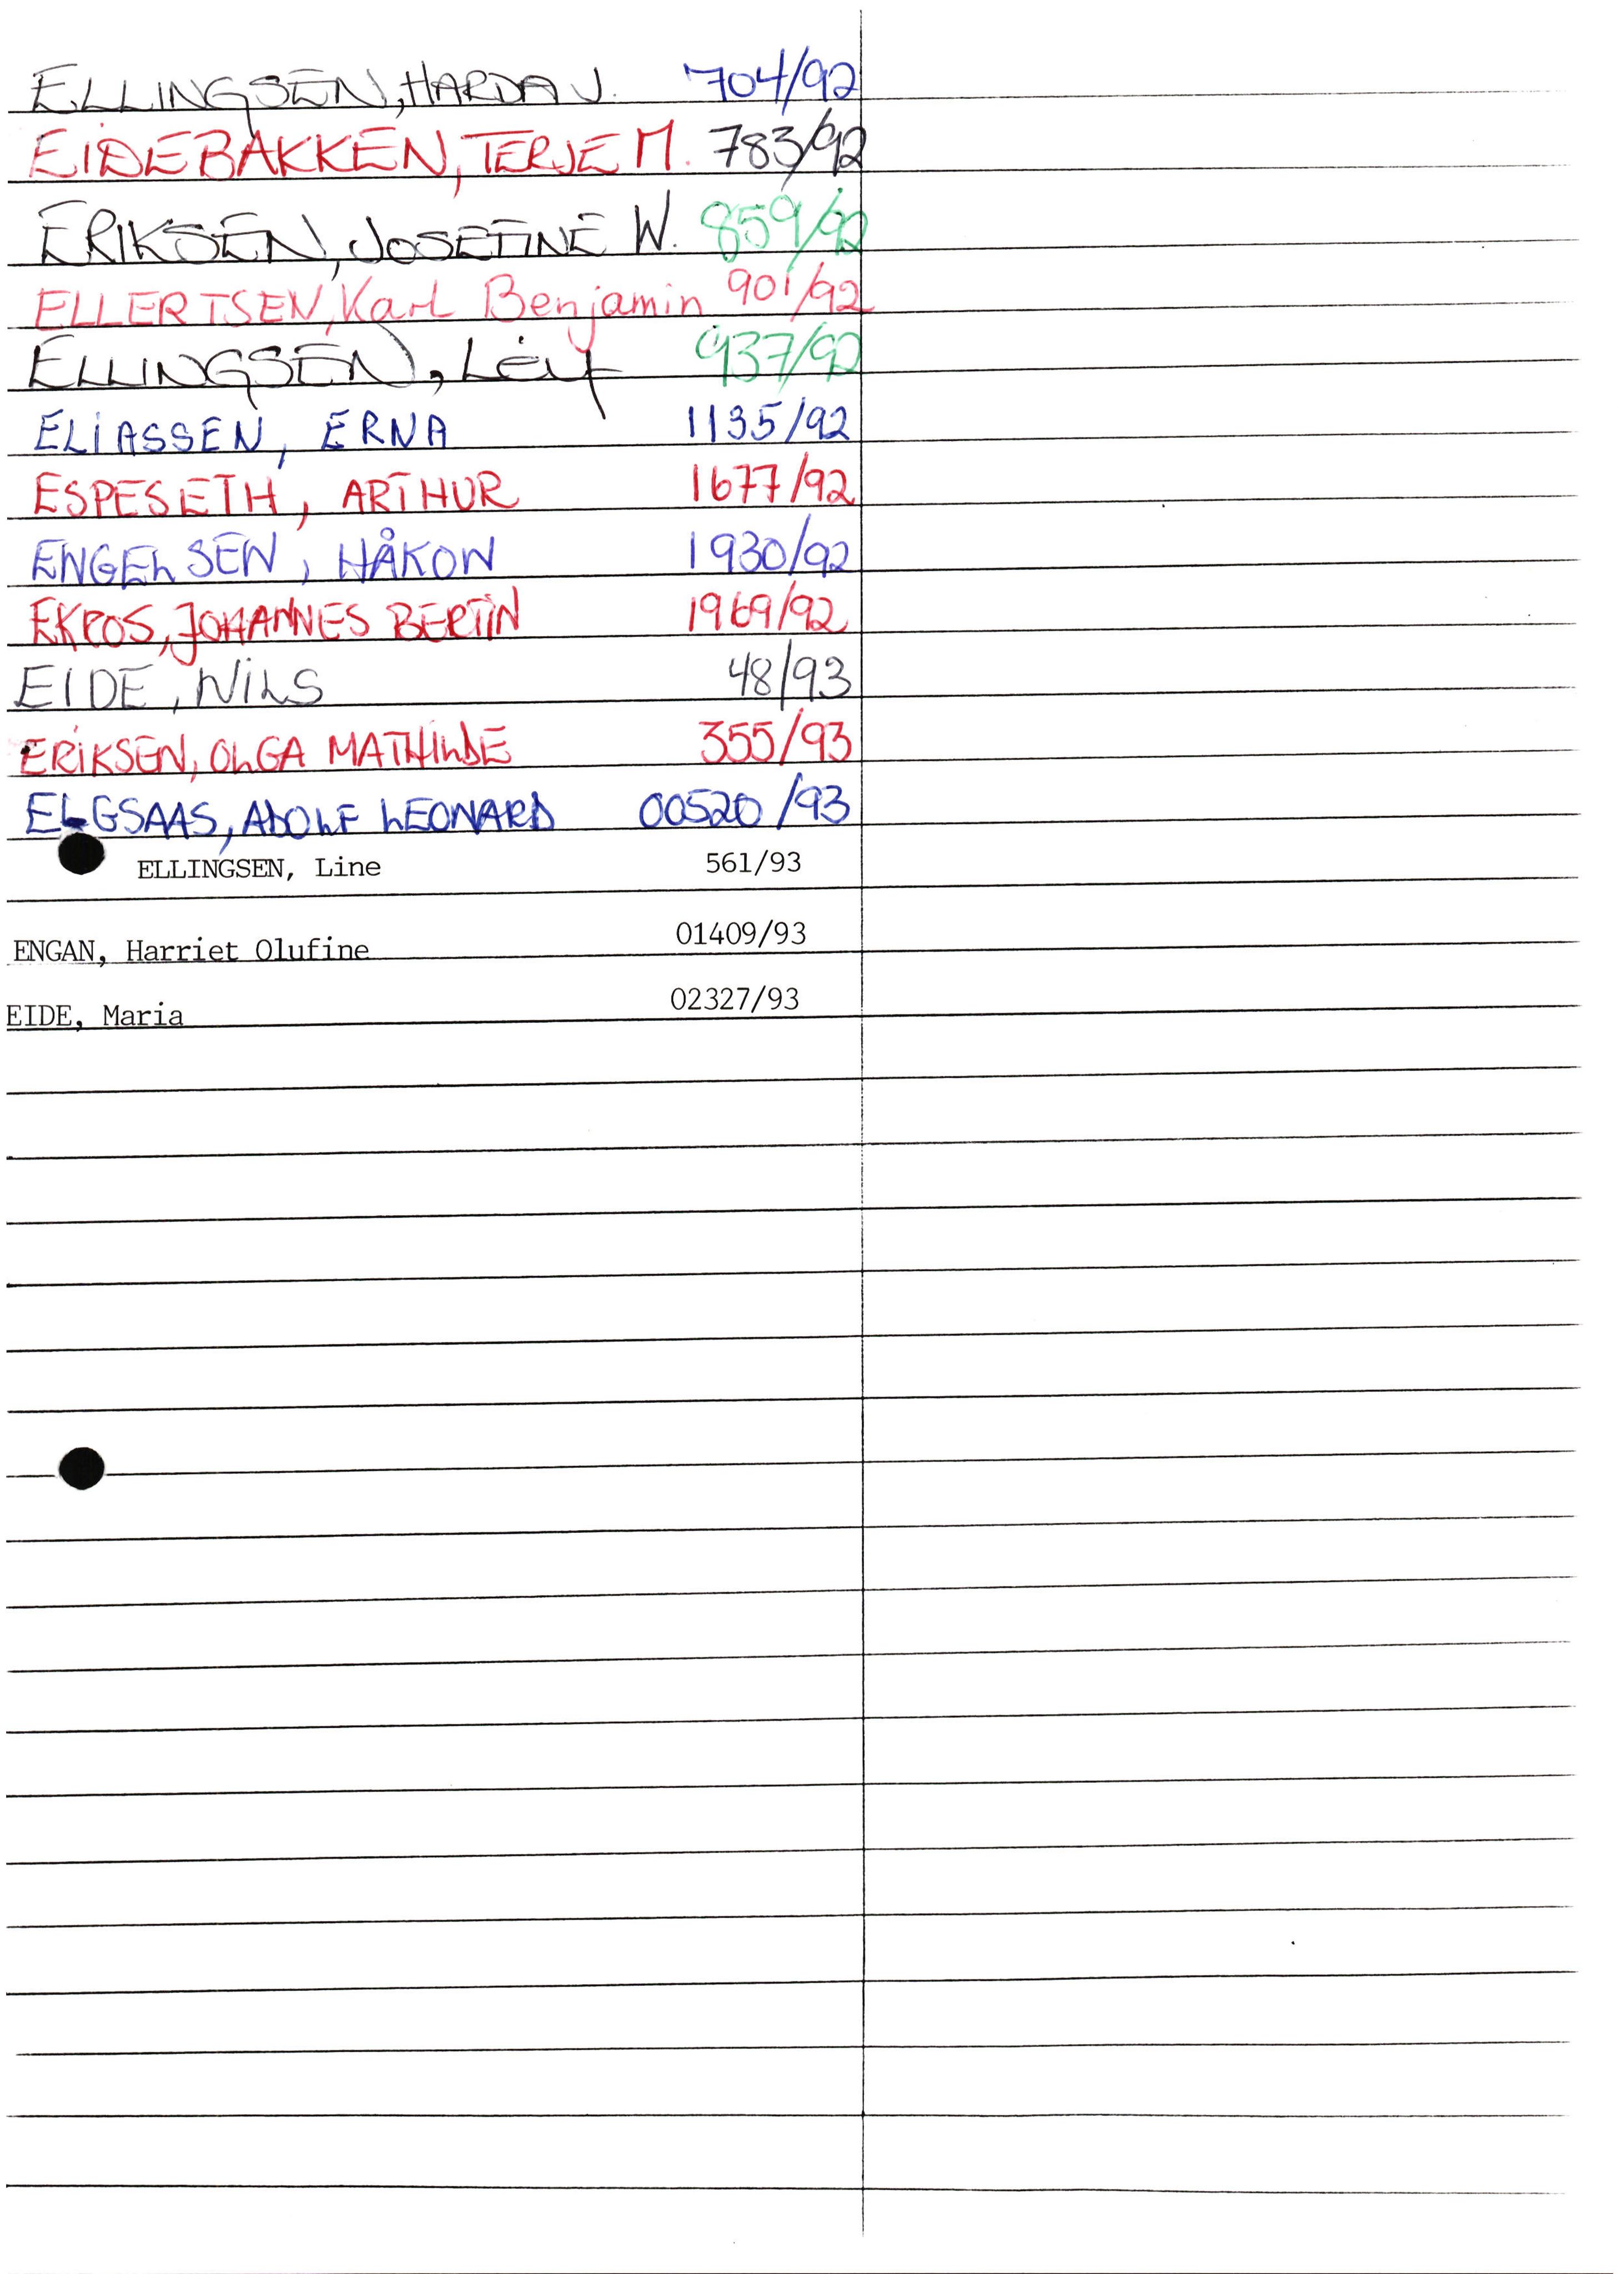 ELLINGSEN, HARDA J. 704/92
EIDEBAKKEN, TERJE M. 783/92
ERIKSEN, JOSEFINE W. 859/92
ELLERTSEN, Karl Benjamin 901/92
ELLINGSEN, Leif 937/92
ELIASSEN, ERNA 1135/92
ESPESETH, ARTHUR 1677/92
ENGELSEN, HÅKON 1930/92
EKROS, JOHANNES BERTIN 1969/92
EIDE, NILS 48/93
ERIKSEN, OLGA MATHILDE 355/93
ELGSAAS, ADOLF LEONARD 00520/93
ELLINGSEN, Line 561/93
ENGAN, Harriet Olufine 01409/93
EIDE, Maria 02327/93